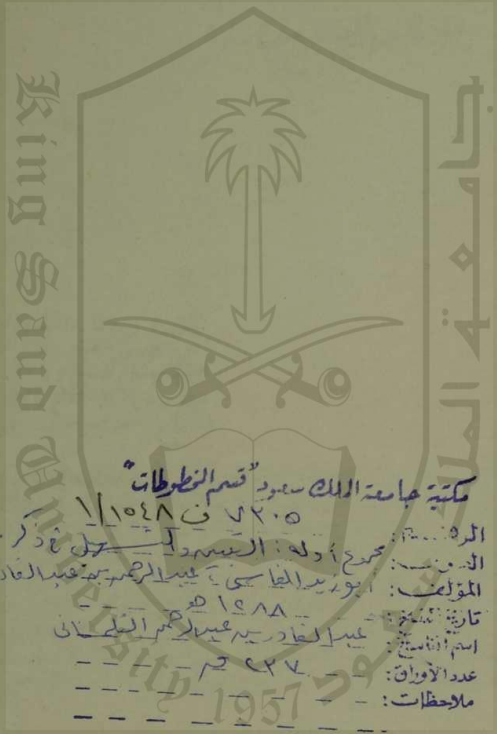 King Saud University
جامعة الملك سعود
1957
مكتبة جامعة الملك سعود "قسم المخطوطات"
الرقم: ٧٣٠٥ ف ١/١٥٤٨
العنوان: مجموع أوله: التيسير والتسهيل في ذكر
المؤلف: أبو زيد الفاسي، عبد الرحمن بن عبد القادر
تاريخ النسخ: ١٢٨٨ هـ
اسم الناسخ: عبد القادر بن عبد الرحمن التلمساني
عدد الأوراق: ٢٣٧ ق
ملاحظات: